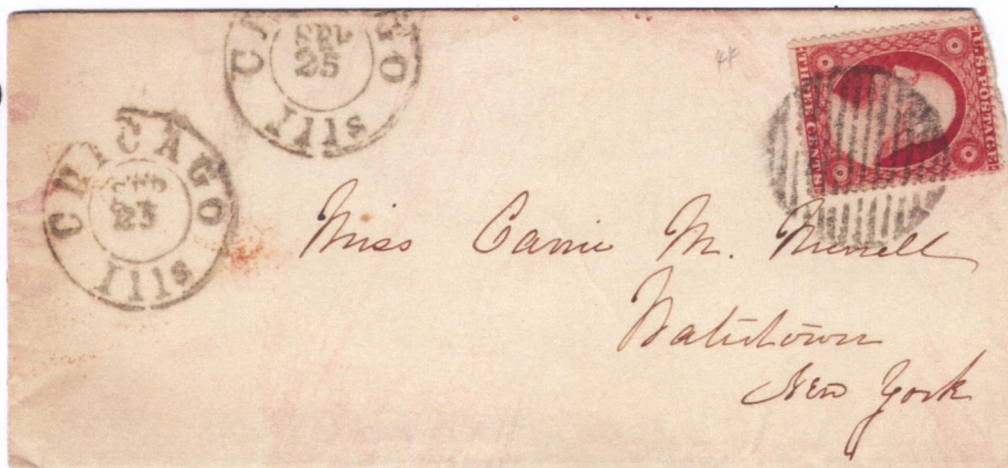 CHICAGO
SEP
25
Ills
CHICAGO
SEP
25
Ills
U.S. POSTAGE
THREE CENTS
Miss Carrie M. Merrell
Watertown
New York